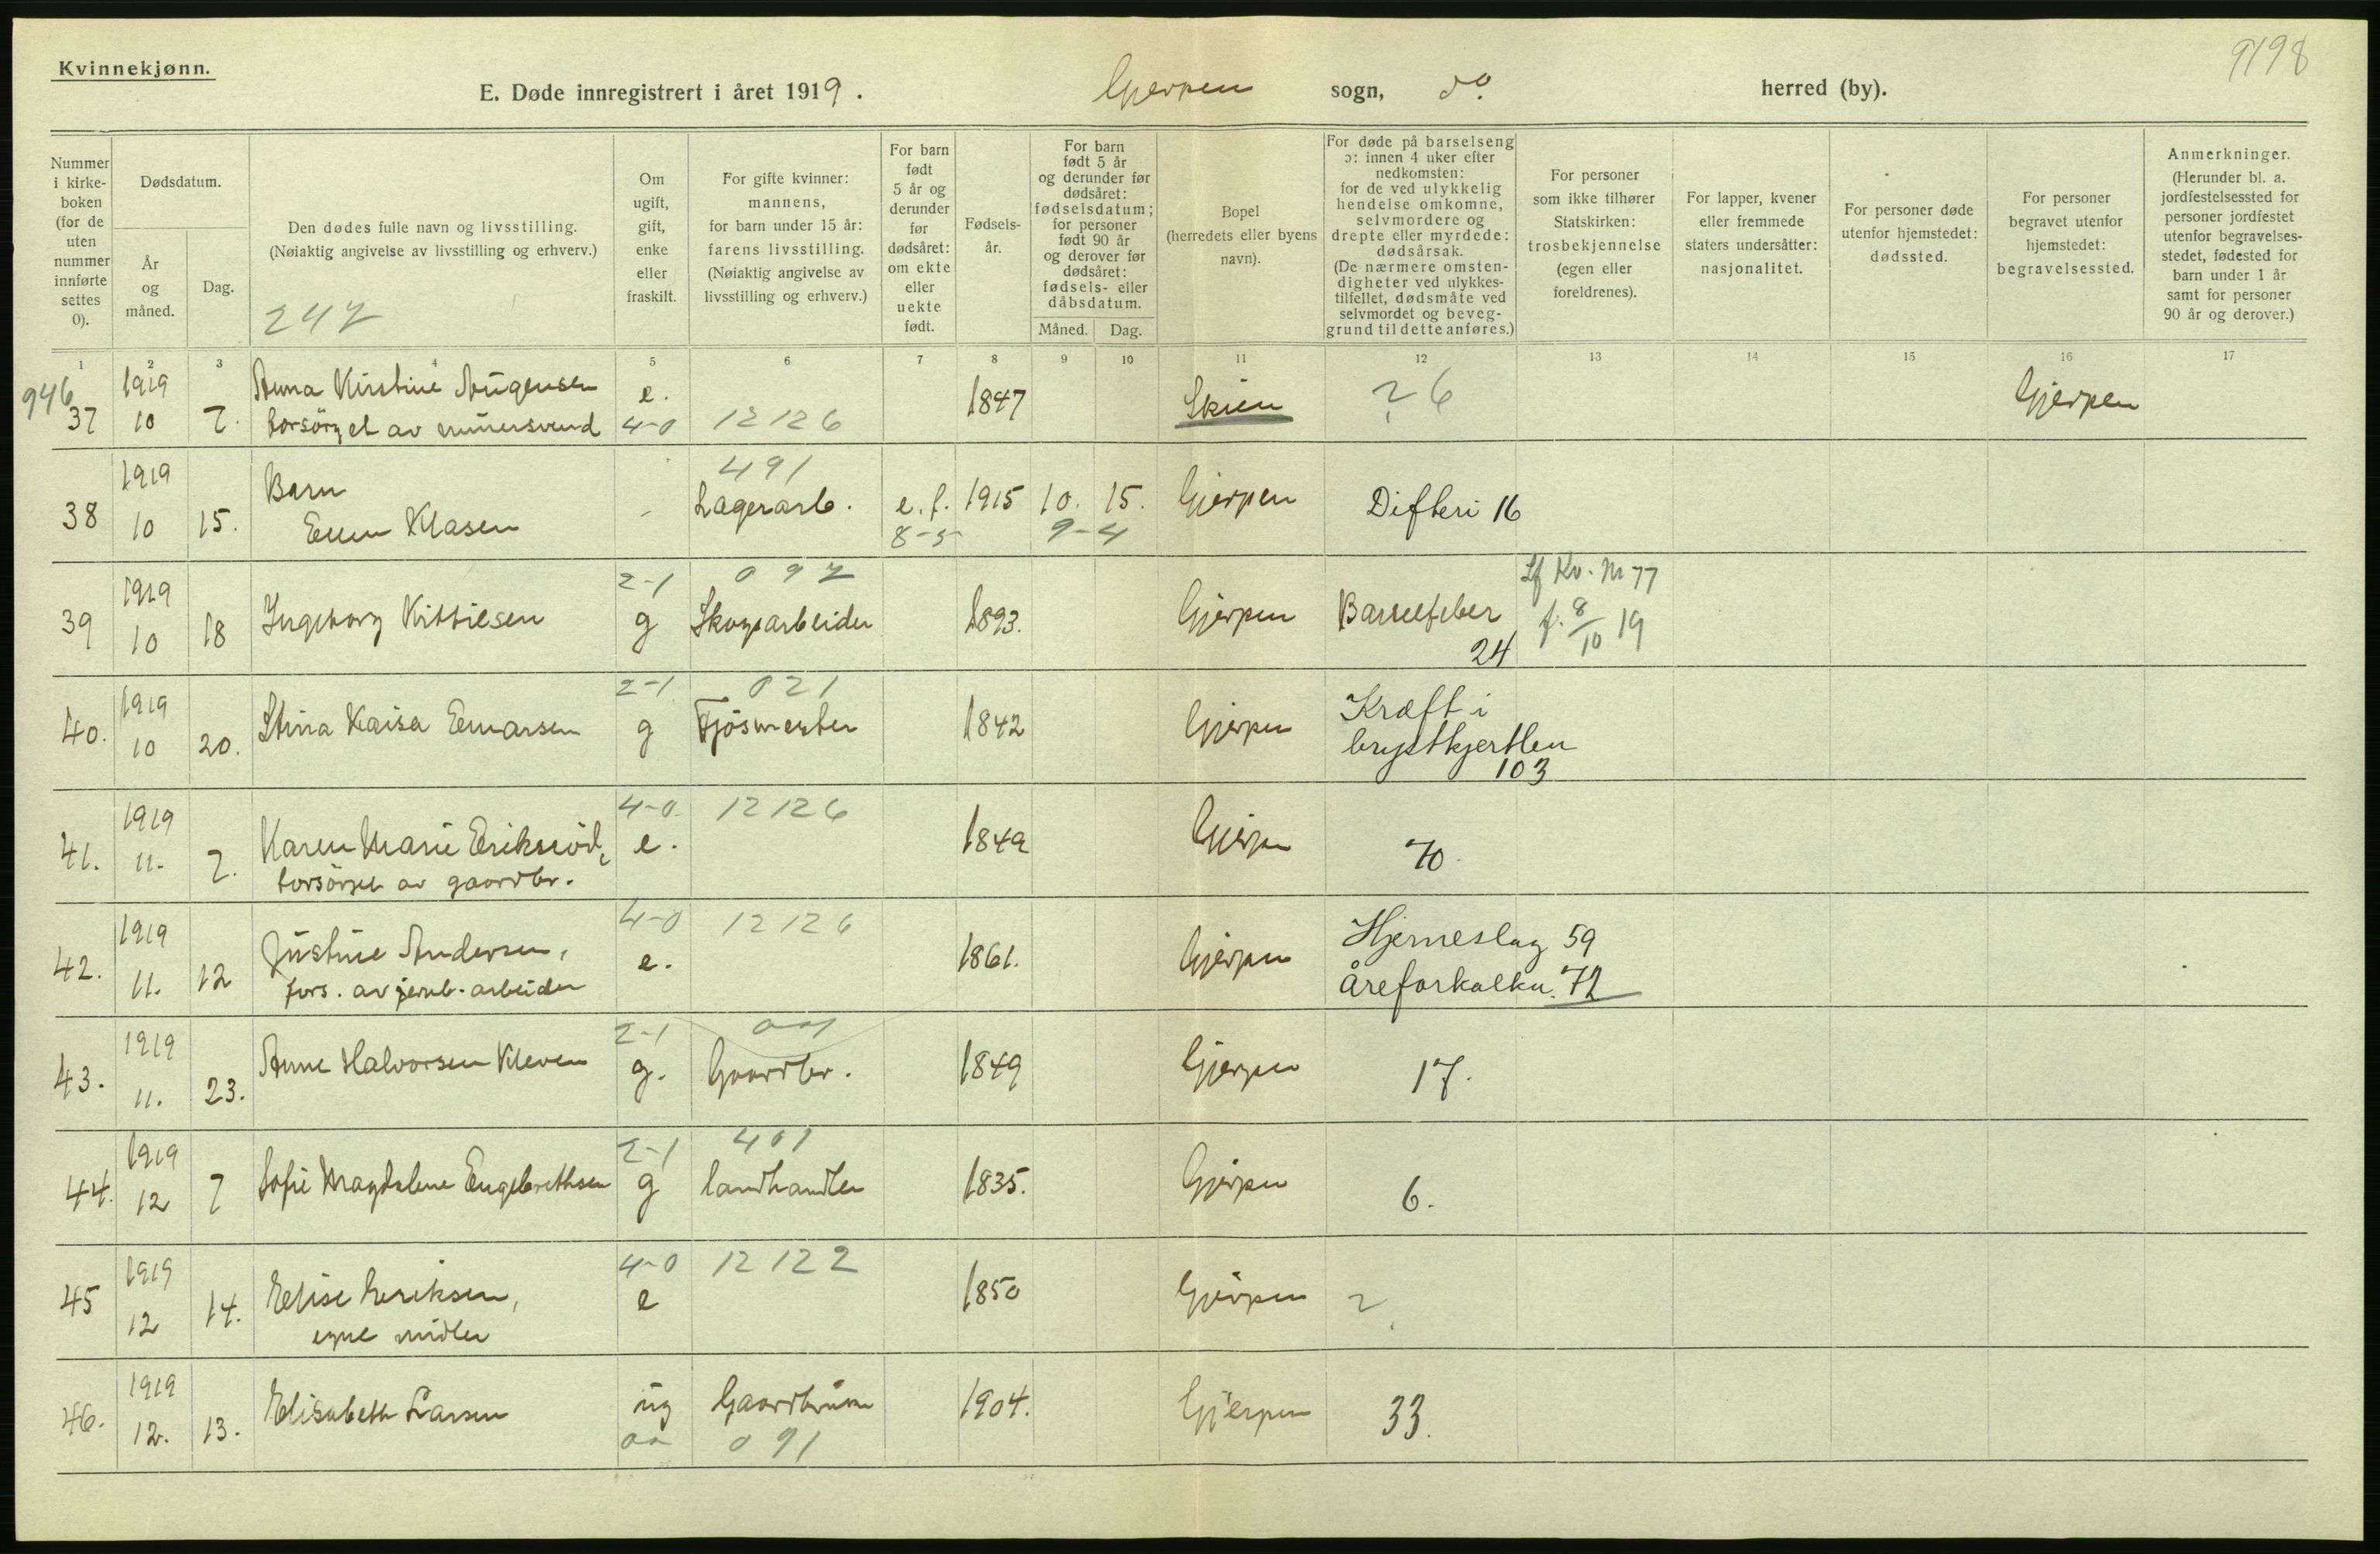 Kvinnekjønn.
9198
E. Døde innregistrert i året 1919.
Gjerpen sogn, do. herred (by).
Nummer i kirke-boken (for de uten nummer innførte settes 0).
Dødsdatum.
År og måned.
Dag.
Den dødes fulle navn og livsstilling.
(Nøiaktig angivelse av livsstilling og erhverv.)
247
Om ugift, gift, enke eller fraskilt.
For gifte kvinner: mannens, for barn under 15 år: farens livsstilling. (Nøiaktig angivelse av livsstilling og erhverv.)
For barn født 5 år og derunder før dødsåret: om ekte eller uekte født.
Fødsels-år.
For barn født 5 år og derunder før dødsåret: fødselsdatum; for personer født 90 år og derover før dødsåret: fødsels- eller dåbsdatum.
Måned. Dag.
Bopel (herredets eller byens navn).
For døde på barselseng ɔ: innen 4 uker efter nedkomsten: for de ved ulykkelig hendelse omkomne, selvmordere og drepte eller myrdede: dødsårsak. (De nærmere omsten-digheter ved ulykkes-tilfellet, dødsmåte ved selvmordet og beveg-grund til dette anføres.)
For personer som ikke tilhører Statskirken: trosbekjennelse (egen eller foreldrenes).
For lapper, kvener eller fremmede staters undersåtter: nasjonalitet.
For personer døde utenfor hjemstedet: dødssted.
For personer begravet utenfor hjemstedet: begravelsessted.
Anmerkninger. (Herunder bl. a. jordfestelsessted for personer jordfestet utenfor begravelses-stedet, fødested for barn under 1 år samt for personer 90 år og derover.)
1 2 3 4 5 6 7 8 9 10 11 12 13 14 15 16 17
946
37 1919 10 7. Anna Kirstine e. 1847 Skien ? 6 Gjerpen
forsørget av murersvend 4-0 12126
491
38 1919 10 15. Barn - Lagerarb. e.f. 1915 10. 15. Gjerpen Difteri 16
Ellen Klasen 8-5 9-4
2-1 097 Kv. Nr 77
39 1919 10 18 Ingeborg Kittilsen g Skogsarbeider 1893. Gjerpen Barselfeber 24 f. 8/10 19
2-1 021
40. 1919 10 20. Stina Kaisa Einarsen g Fjøsmester 1842 Gjerpen Kræft i
brystkjertlen
103
4-0 12126
41. 1919 11. 7. Karen Marie e. 1849 Gjerpen 70.
forsørget av gaardbr.
4-0 12126
42. 1919 11. 12 Justine Andersen, e. 1861. Gjerpen Hjerneslag 59
fors. av jernb. arbeider Åreforkalkn. 72
2-1
43. 1919 11. 23. Anne Halvorsen Kleven g. Gaardbr. 1849 Gjerpen 17.
2-1 401
44. 1919 12 7 Sofie Magdalene Engebrethsen g landhandler 1835. Gjerpen 6.
4-0 12122
45 1919 12 14. Elise Eriksen, e 1850 Gjerpen ?
egne midler
46. 1919 12. 13. Elisabeth Larsen ug Gaardbruker 1904. Gjerpen 33.
091